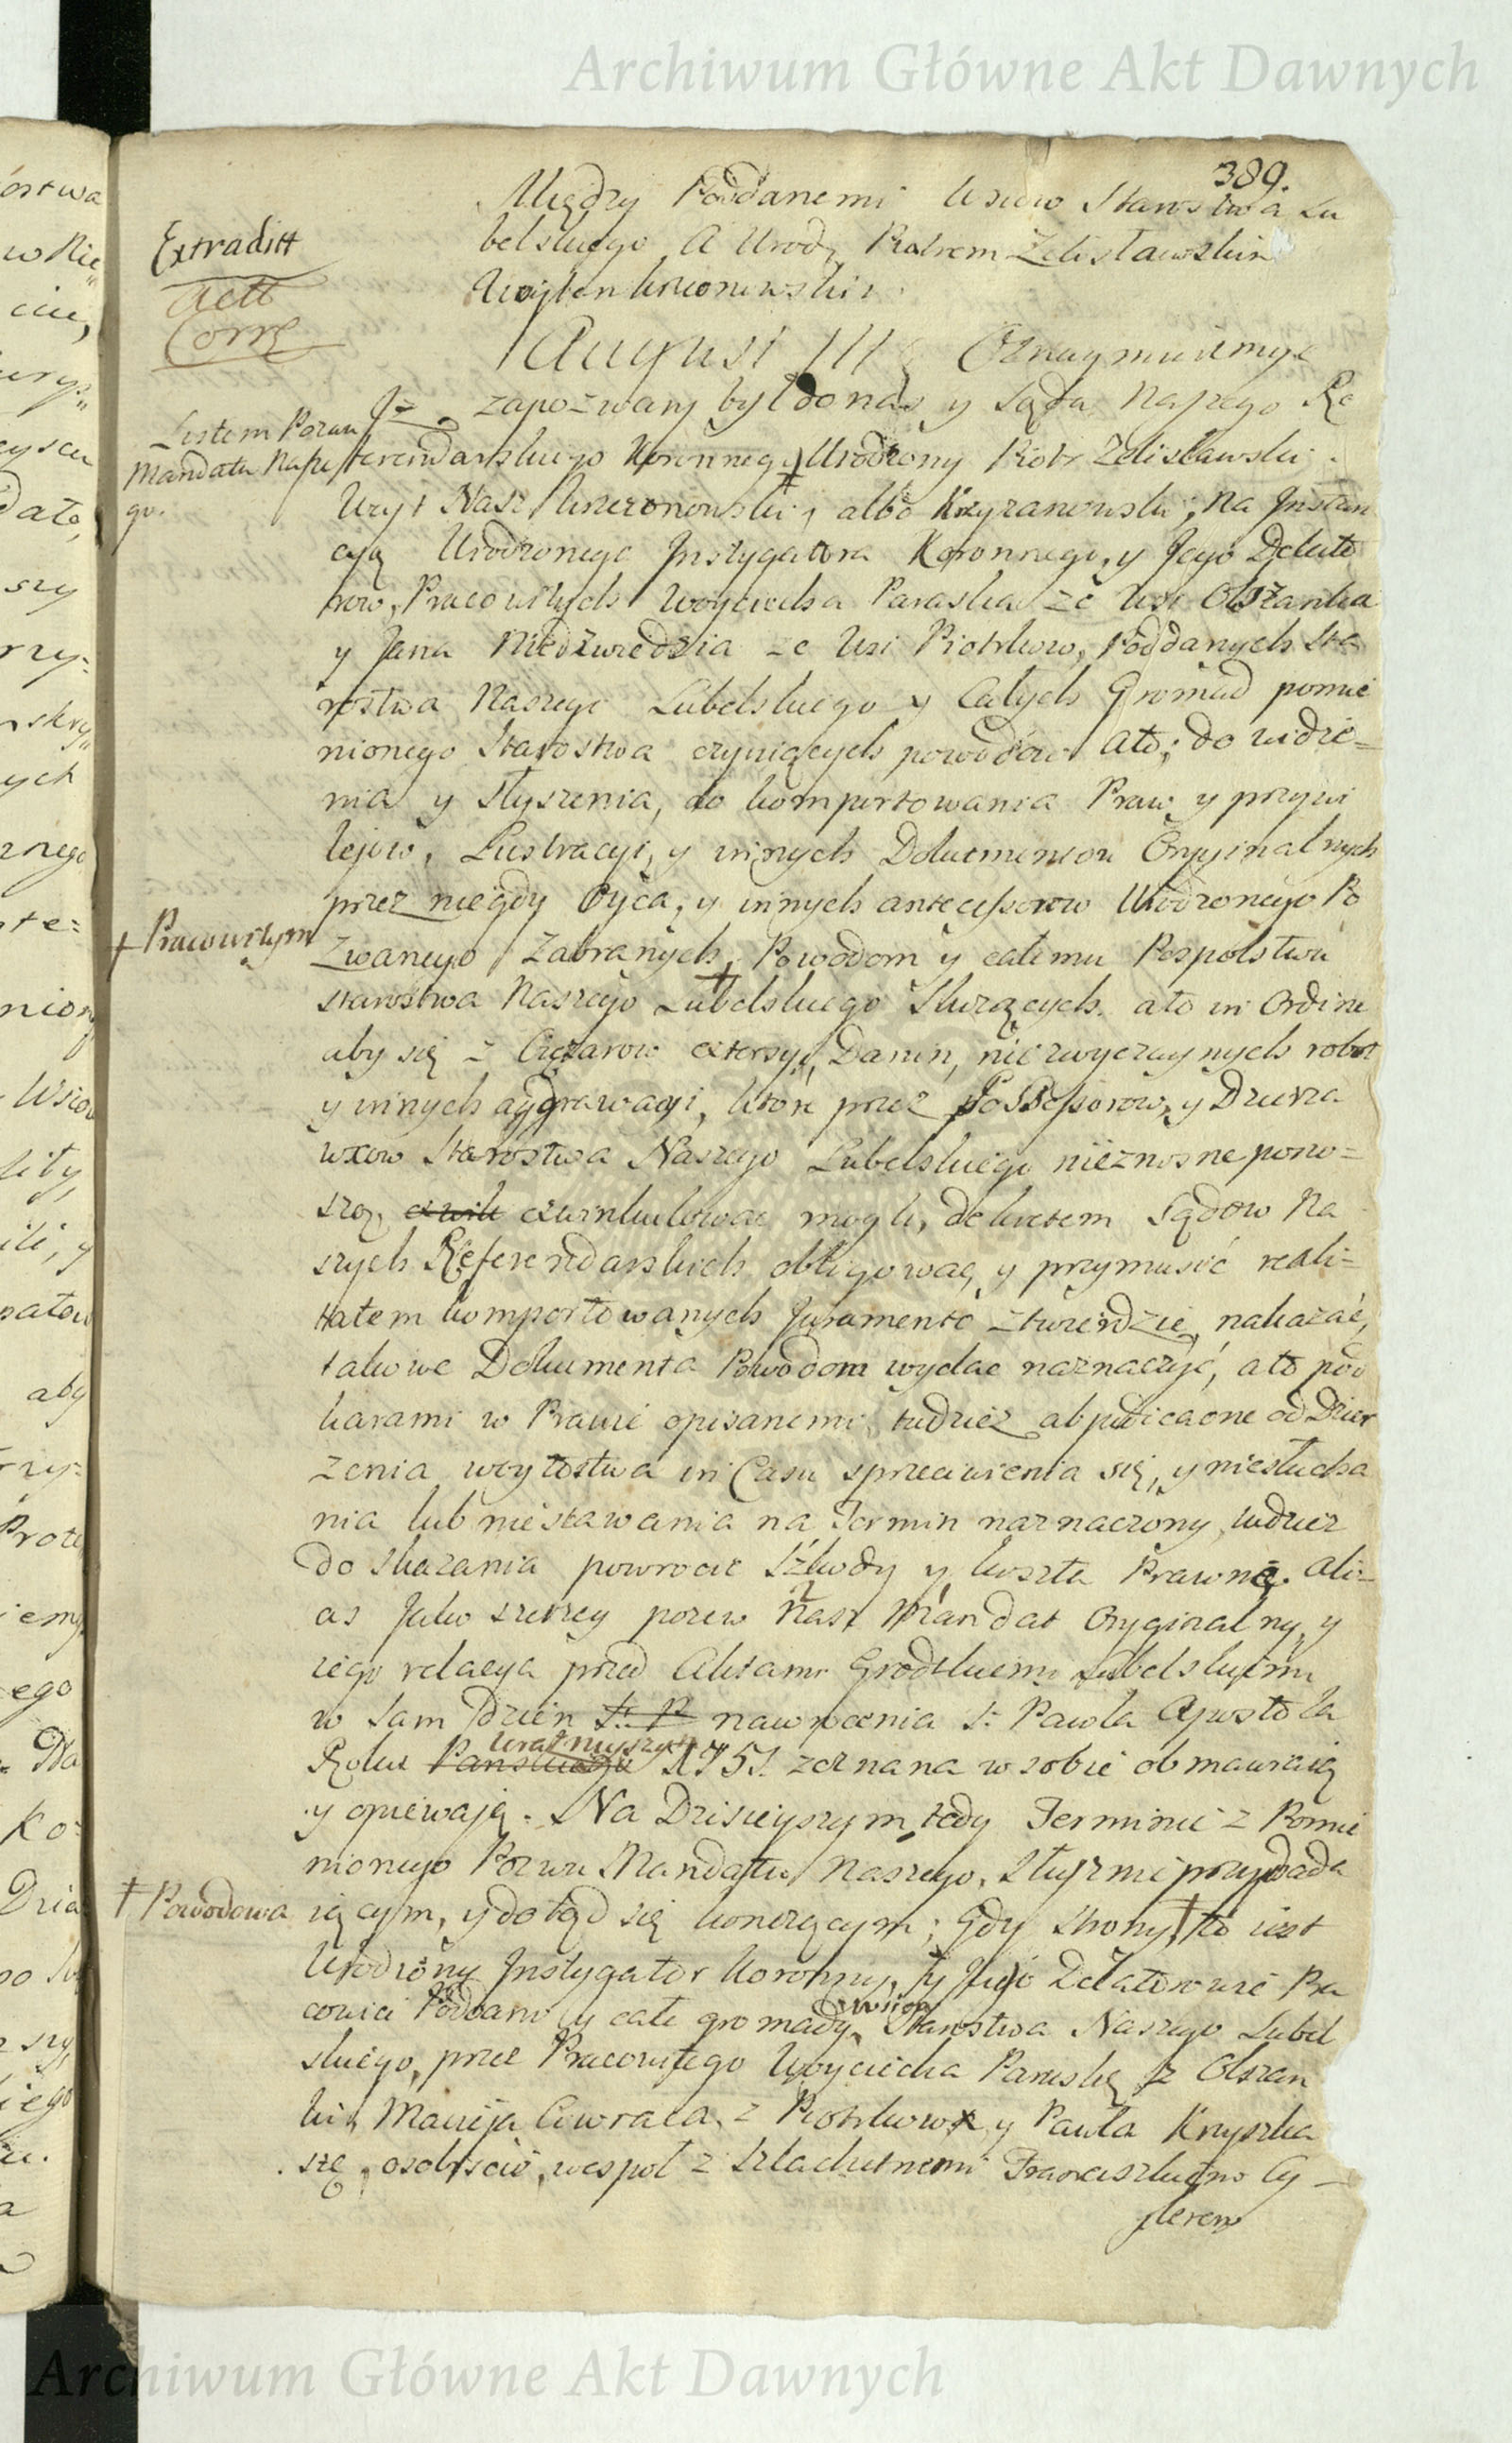 Archiwum Główne Akt Dawnych
389.
Między Poddanemi wsiow Starostwa Lu
belskiego A Urodz Piotrem Zelisławskim
Woyten krzonowskim
Extraditt
Actt
Corre
August III Oznaymuiemy
Jz zapozwany był do nas y sądu Naszego Re
Listem Pozwu
Mandatu Nasze
go.
ferendarskiego Koronneg Urodzony Piotr Zelisławski
Woyt Nasz krzczonowski, albo Krzyzanowski, Na Jnstan
cyą Urodzonego Jnstygatora Koronnego, y Jego Delato
row, Pracowitych Woyciecha Paraska ze wsi Olszanka
y Jana Niedzwiedzia ze wsi Piotrkow, Poddanych Sta
rostwa Naszego Lubelskiego y Całych Gromad pomie
nionego Starostwa czyniących powodow Ato; do widze=
nia y słyszenia, do komportowania Praw y przywi
lejow, Lustracyi, y innych Dokumentow Oryginalnych
przez niegdy Oyca, y innych antecessorow Urodzonego Po
zwanego Zabranych, Powodom y całemu Pospolstwu
+ Pracowitym
Starostwa Naszego Lubelskiego Służących. ato in Ordine
aby się z Ciężarow extorsyi, Danin, niezwyczaynych robot
y innych aggrawacyi, które przez Possessorow, y Dzierza
wcow Starostwa Naszego Lubelskiego nieznosne pono=
szą, exwik exwinkulować mogli, dekretem Sądow Na
szych Referendarskich obligować, y przymusić reali=
tatem komportowanych Juramento ztwierdzić, nakazać,
takowe Dokumenta Powodom wydać naznaczyć, ato pod
karami w Prawie opisanemi, tudziez abjudicacne od Dzier
zenia woytostwa in Casu sprzeciwienia się, y niesłucha
nia lub niestawania na Termin naznaczony, tudziez
do skazania powrocie Szkody y koszta Prawne. ali=
as Jako szerzey pozew Nasz Mandat Oryginalny, y
iego relacya przed Aktami Grodzkiemi Lubelskiemi
w sam Dzien S: P nawrocenia S: Pawła Apostoła
Roku Panskiego teraznieyszym 1751. zeznana w sobie obmawiaią
y opiewaią. Na Dzisieyszym tedy Terminie z Pomie
nionego Pozwu Mandatu Naszego, Słusznie przypada
iącym, y dotąd się konczącym; Gdy strony to iest
+ Powodowa
Urodzony Jnstygator Koronny, y Jego Delatorowie Pra
cowici Poddani y całe gromady wsiow Starostwa Naszego Lubel
skiego, przez Pracowitego Woyciecha Paraskę z Olszan
ki, Macieja Ciwrala z Piotrkowa y Pawła Kryszka
szę, osobiscie, wespoł z Szlachetnemi Franciszkiem Cy=
plerem
Archiwum Główne Akt Dawnych